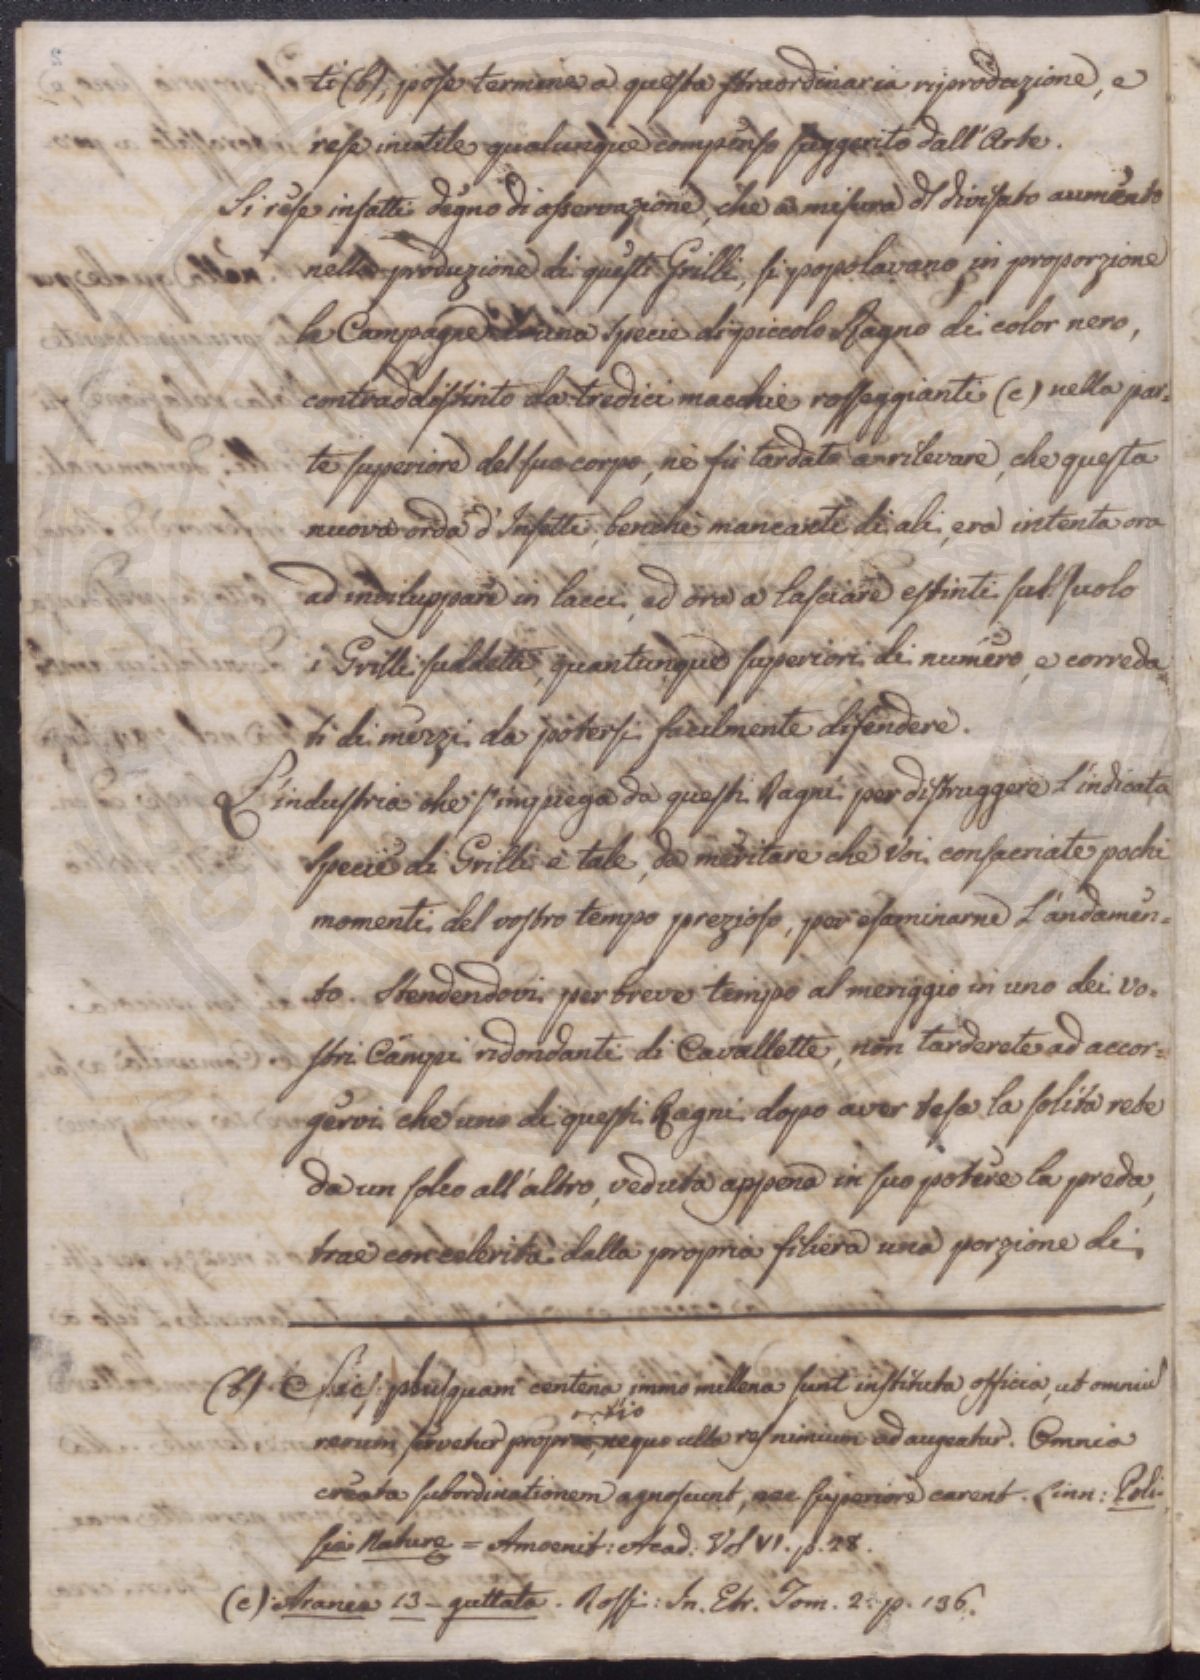 ti (b), pose termine a questa straordinaria riproduzione, e
rese inutile qualunque compenso suggerito dall'Arte.
Si rese infatti degno di osservazione, che a misura dl divisato aumento
nella produzione di questi Grilli, si popolavano in proporzione
le Campagne di una specie di piccolo Ragno di color nero,
contraddistinto da tredici macchie rosseggianti (c) nella par=
te superiore del suo corpo, nè fù tardato a rilevare, che questa
nuova orda d'Insetti, benchè mancante di ali, era intenta ora
ad inviluppare in lacci, ed ora a lasciare estinti sul suolo
i Grilli suddetti, quantunque superiori di numero, e correda
ti di mezzi da potersi facilmente difendere.
L'industria che s'impiega da questi Ragni per distruggere l'indicata
specie di Grilli è tale, da meritare che Voi consacriate pochi
momenti del vostro tempo prezioso, per esaminarne l'andamen=
to. Stendendovi per breve tempo al meriggio in uno dei vo=
stri Campi ridondanti di Cavallette, non tarderete ad accor=
gervi che uno di questi Ragni dopo aver tesa la solita rete
da un solco all'altro, veduta appena in suo potere la preda,
trae con celerità dalla propria filiera una porzione di
(b) Sic plusquam centena, immo millena sunt instituta officia, ut omniu
rerum servetur proportio, neque ulla res nimium adaugeatur. Omnia
creata subordinationem agnoscunt, nec superiore carent. Linn: Poli=
sia Nature = Amoenit: Acad: Vol VI. p. 28.
(c) Aranea 13-guttata. Rossi: In. Etr. Tom. 2. p. 136.